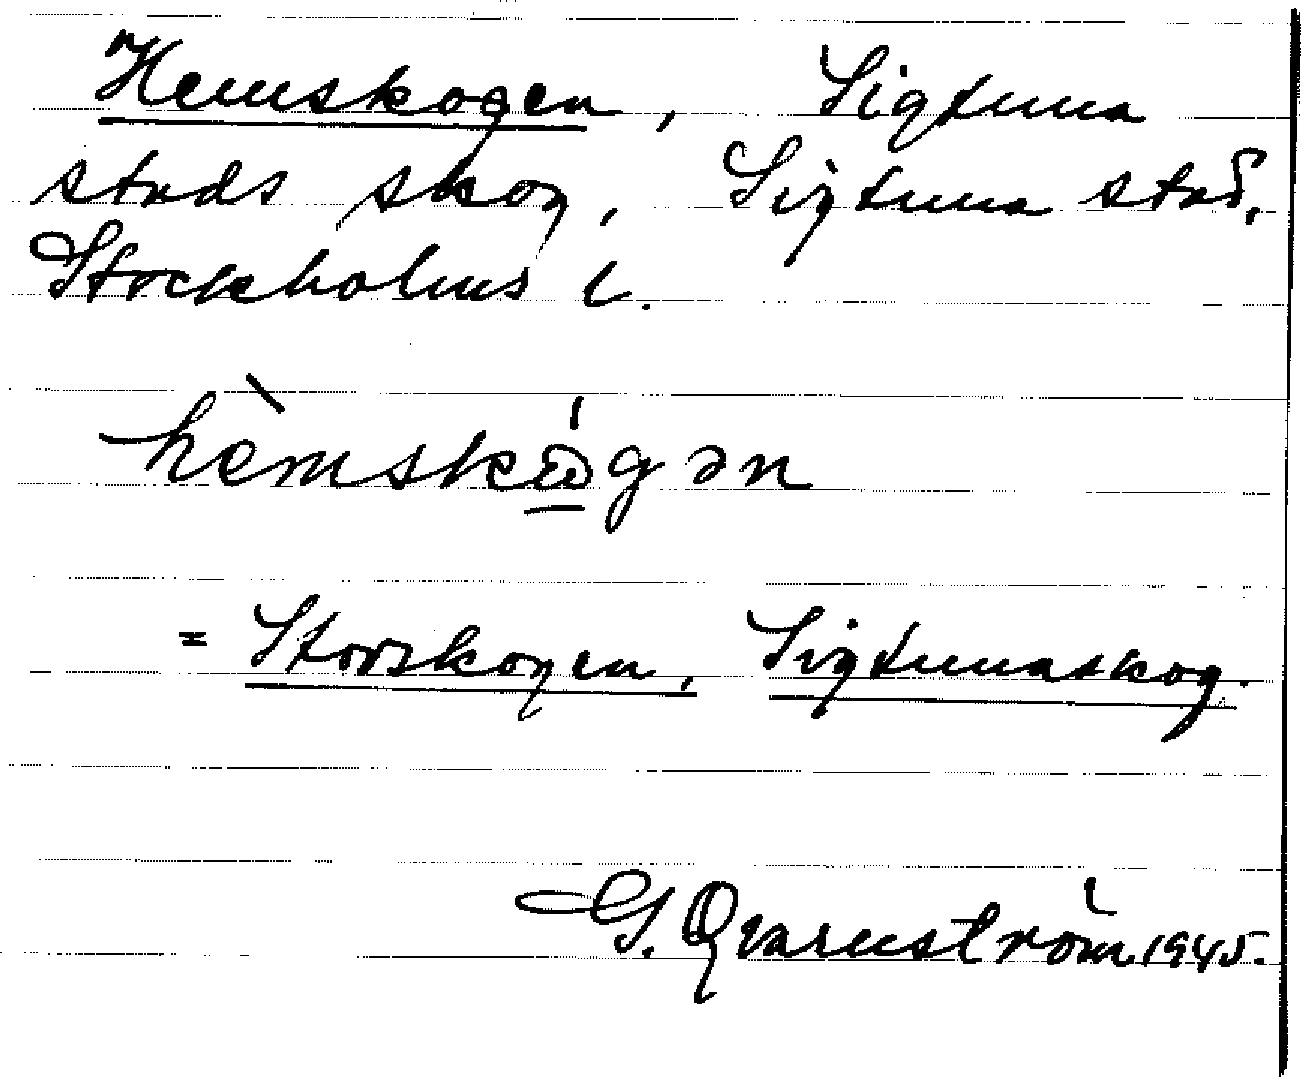 Hemskogen, Sigtuna
stads skog, Sigtuna stad,
Stockholms l.
hèmskώ̱gən
= Storskogen, Sigtunaskog.
G. Qvarnström 1945.